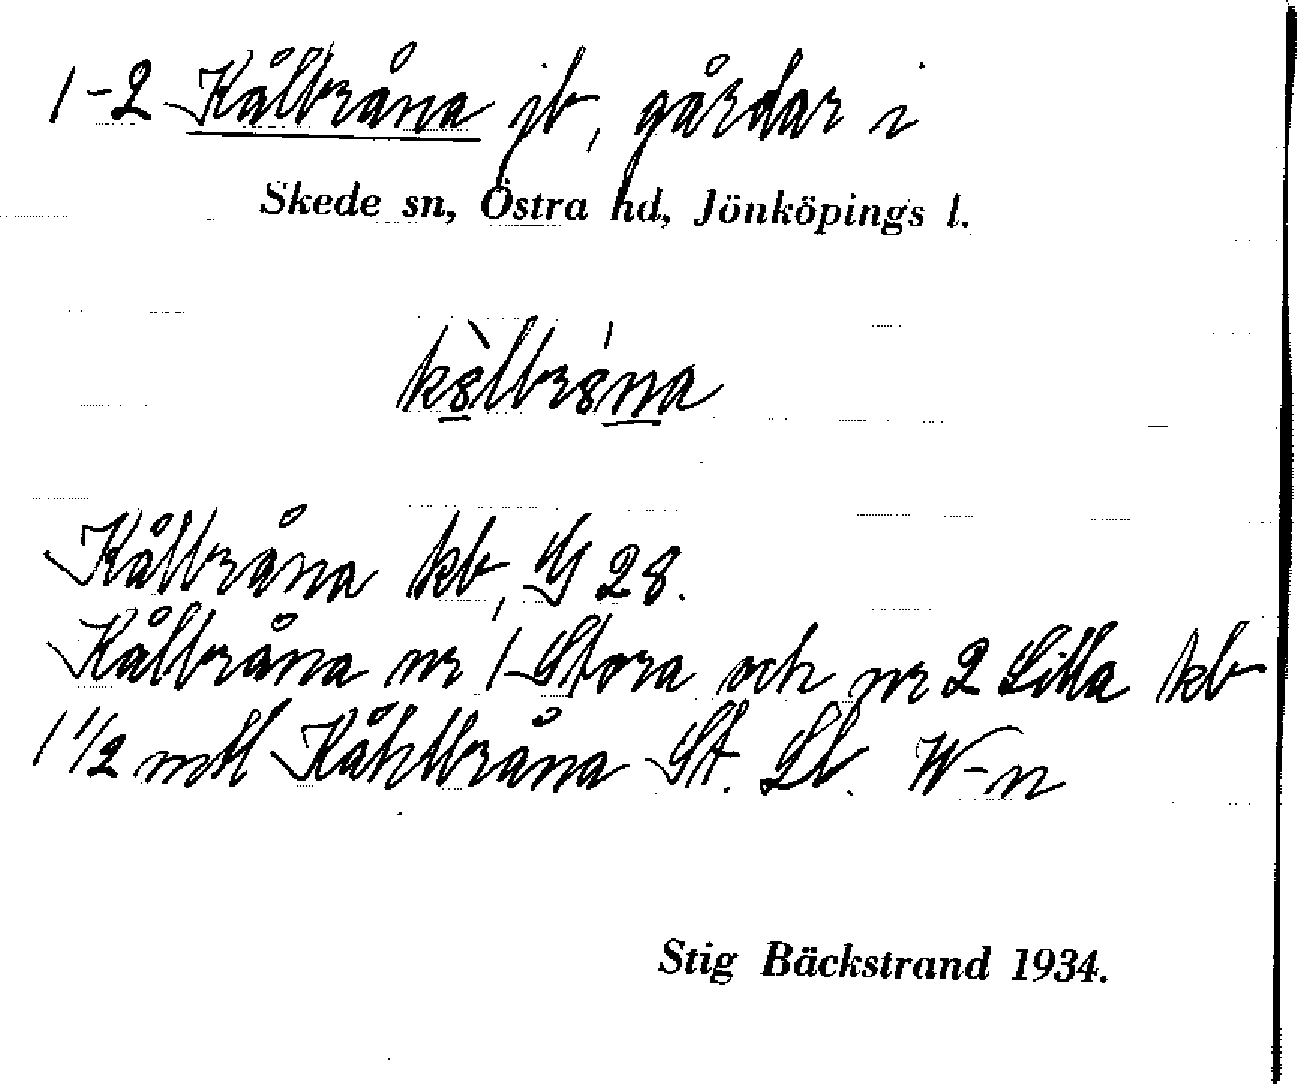 1-2 Kålbråna jb, gårdar i
Skede sn, Östra hd, Jönköpings l.
k8̀lbr8́na
Kålbråna kb, 28.
Kålbråna nr 1 Stora och nr 2 Lilla kb
1 1/2 mtl Kåhlbråna St. Ll. W-n
Stig Bäckstrand 1934.